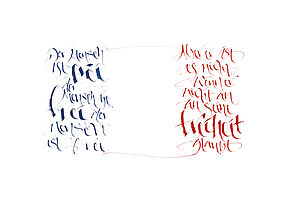 Der Mensch
ist frei
der
Mensch ist
frei der
Mensch
ist frei
Aber er ist
es nicht
wenn er
nicht an
an seine
Freiheit
glaubt